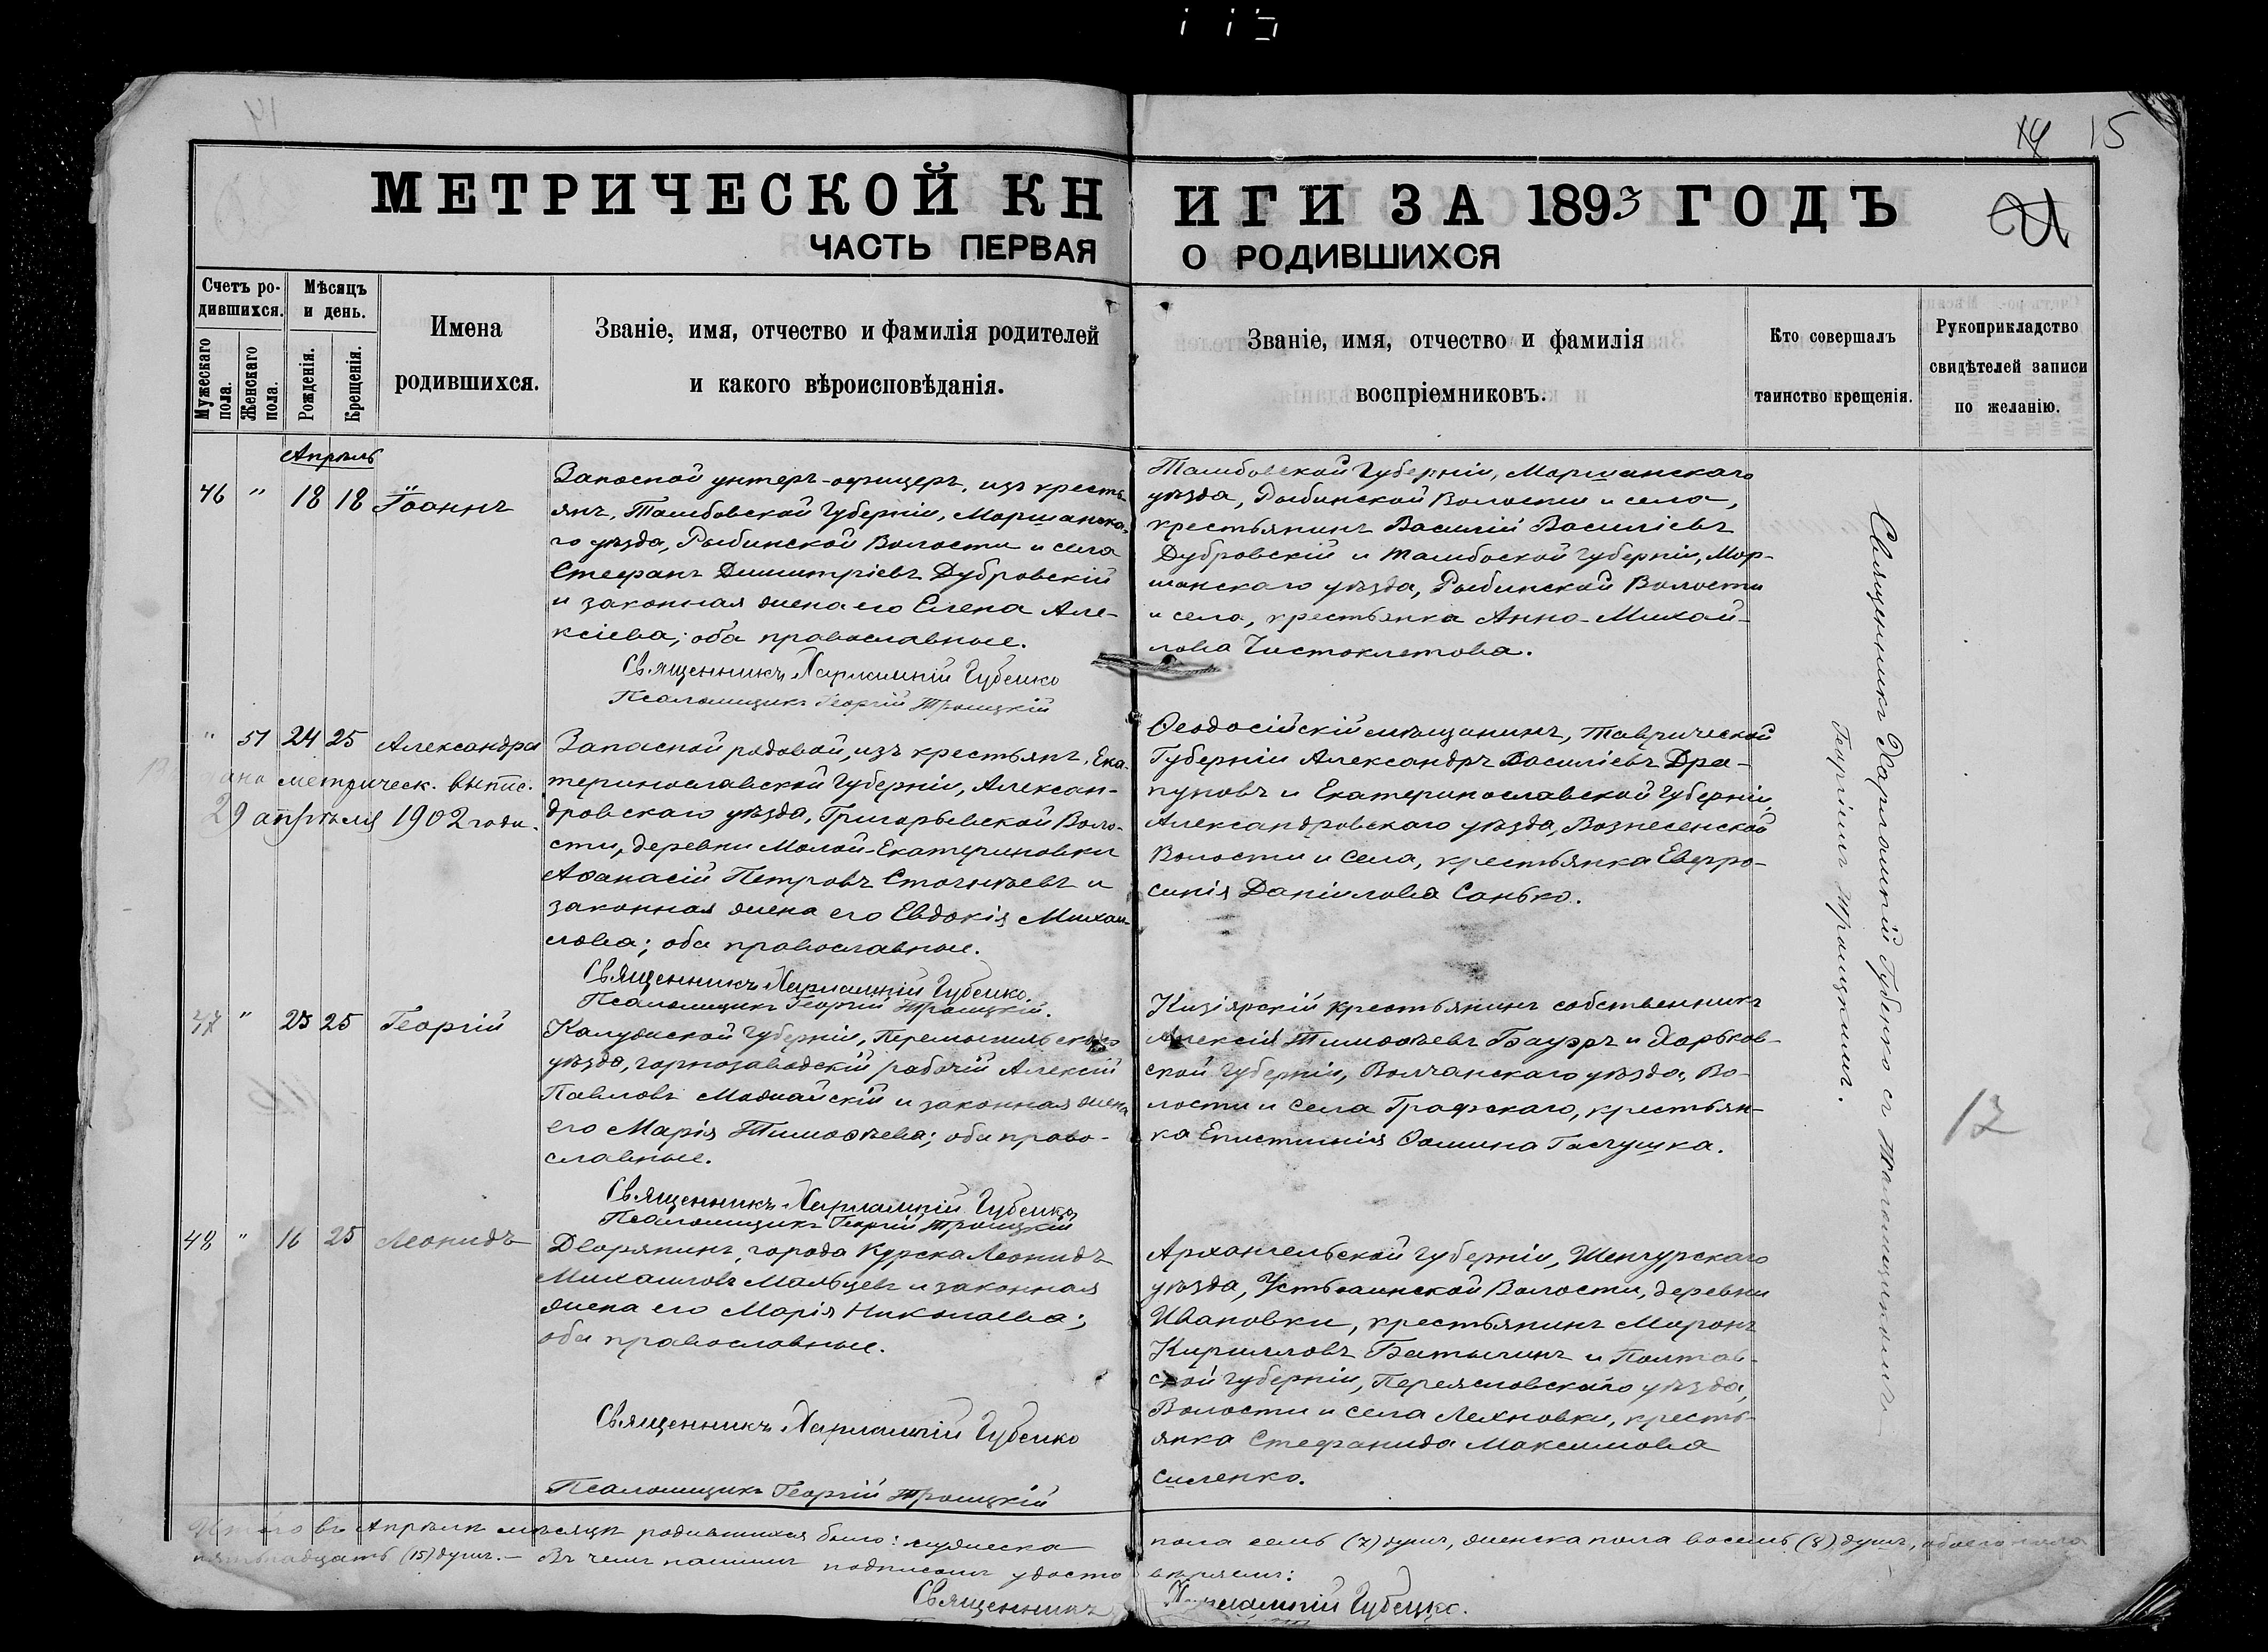 14 15
МЕТРИЧЕСКОЙ КНИГИ ЗА 1893 ГОДЪ
ЧАСТЬ ПЕРВАЯ О РОДИВШИХСЯ
Счетъ ро-
дившихся.
Мужескаго пола.
Женскаго пола.
Мѣсяцъ
и день.
Рожденія.
Крещенія.
Имена
родившихся.
Званіе, имя, отчество и фамилія родителей
и какого вѣроисповѣданія.
Званіе, имя, отчество и фамилія
воспріемниковъ.
Кто совершалъ
таинство крещенія.
Рукоприкладство
свидѣтелей записи
по желанію.
Апрѣль
46 " 18 18 Іоаннъ
Запасной унтеръ-офицеръ, изъ кресть-
янъ, Тамбовской Губерніи, Моршанска-
го уѣзда, Рыбинской Волости и села
Стефанъ Димитріевъ Дубровскій
и законная жена его Елена Але-
ксіева; оба православные.
Священникъ Харлампій Губенко
Псаломщикъ Георгій Троицкій
Тамбовской Губерніи, Моршанскаго
уѣзда, Рыбинской Волости и села,
крестьянинъ Василій Василіевъ
Дубровскій и Тамбоской Губерніи, Мор-
шанскаго уѣзда, Рыбинской Волости
и села, крестьянка Анна Михай-
лова Чистоклетова.
" 51 24 25 Александра
метрическ. выпис.
29 апрѣля 1902 года.
Запасной рядовой, изъ крестьянъ, Ека-
теринославской Губерніи, Алексан-
дровскаго уѣзда, Григорьевской Воло-
сти, деревни Малой-Екатериновки
Аѳанасій Петровъ и
законная жена его Евдокія Михаи-
лова; оба православные.
Священникъ Харлампій Губенко.
Псаломщикъ Георгій Троицкій.
Ѳеодосійскій мѣщанинъ, Таврической
Губерніи Александръ Василіевъ Дра-
гуновъ и Екатеринославской Губерніи,
Александровскаго уѣзда, Вознесенской
Волости и села, крестьянка Евфро-
синія Даніилова Санько.
47 " 23 25 Георгій
Калужской Губерніи, Перемышльскаго
уѣзда, горнозаводскій рабочій Алексій
Павловъ и законная жена
его Марія Тимоѳѣева; оба право-
славные.
Священникъ Харлампій Губенко
Псаломщикъ Георгій Троицкій
Кизіярскій крестьянинъ собственникъ
Алексій Тимоѳѣевъ Бауэръ и Харьков-
ской Губерніи, Волчанскаго уѣзда, Во-
лости и села Графскаго, крестьян-
ка Епистимія Ѳомина
48 " 16 25 Леонидъ
Дворянинъ, города Курска Леонидъ
Михаиловъ Мальцевъ и законная
жена его Марія Николаева;
оба православные.
Священникъ Харлампій Губенко
Псаломщикъ Георгій Троицкій
Архангельской Губерніи, Шенкурскаго
уѣзда, Волости, деревни
Ивановки, крестьянинъ Миронъ
Кирилловъ Батыгинъ и Полтав-
ской Губерніи, Переяславскаго уѣзда,
Волости и села Лехновки, кресть-
янка Стефанида Максимова
Силенко.
Священникъ Харлампій Губенко съ псаломщикомъ
Георгіемъ Троицкимъ.
12
Итого въ Апрѣлѣ мѣсяцѣ родившихся было: мужеска пола семь (7) душъ, женска пола восемь (8) душъ, обоего пола
пятнадцать (15) душъ. — Въ чемъ нашимъ подписомъ удостовѣряемъ:
Священникъ Харлампій Губенко.